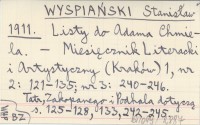 WYSPIAŃSKI Stanisław
1911. Listy do Adama Chmie-
la. — Miesięcznik Literacki
i Artystyczny (Kraków) 1, nr
2: 121-135; nr 3: 240-246.
Tatr, Zakopanego i Podhala dotyczą
s. 125-128, 133, 242-245.
BZ